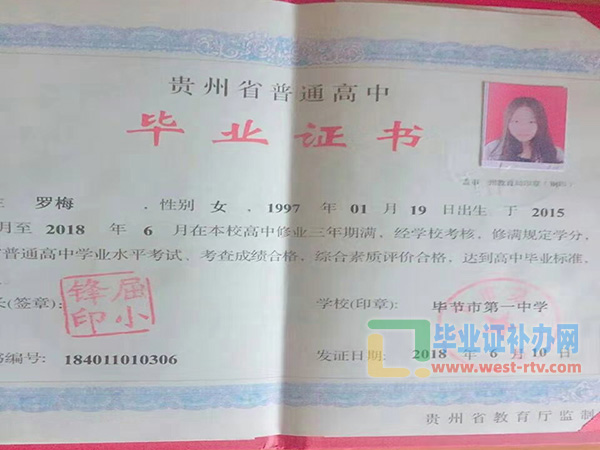 贵州省普通高中
毕业证书
罗梅 ,性别 女, 1997 年 01 月 19 日出生 于 2015
月至 2018 年 6 月在本校高中修业三年期满,经学校考核,修满规定学分,
普通高中学业水平考试、考查成绩合格,综合素质评价合格,达到高中毕业标准,
长(签章):
屈小锋印
学校(印章): 毕节市第一中学
书编号: 184011010306
发证日期: 2018 年 6 月 10 日
毕业证补办网
www.west-rtv.com
贵州省教育厅监制